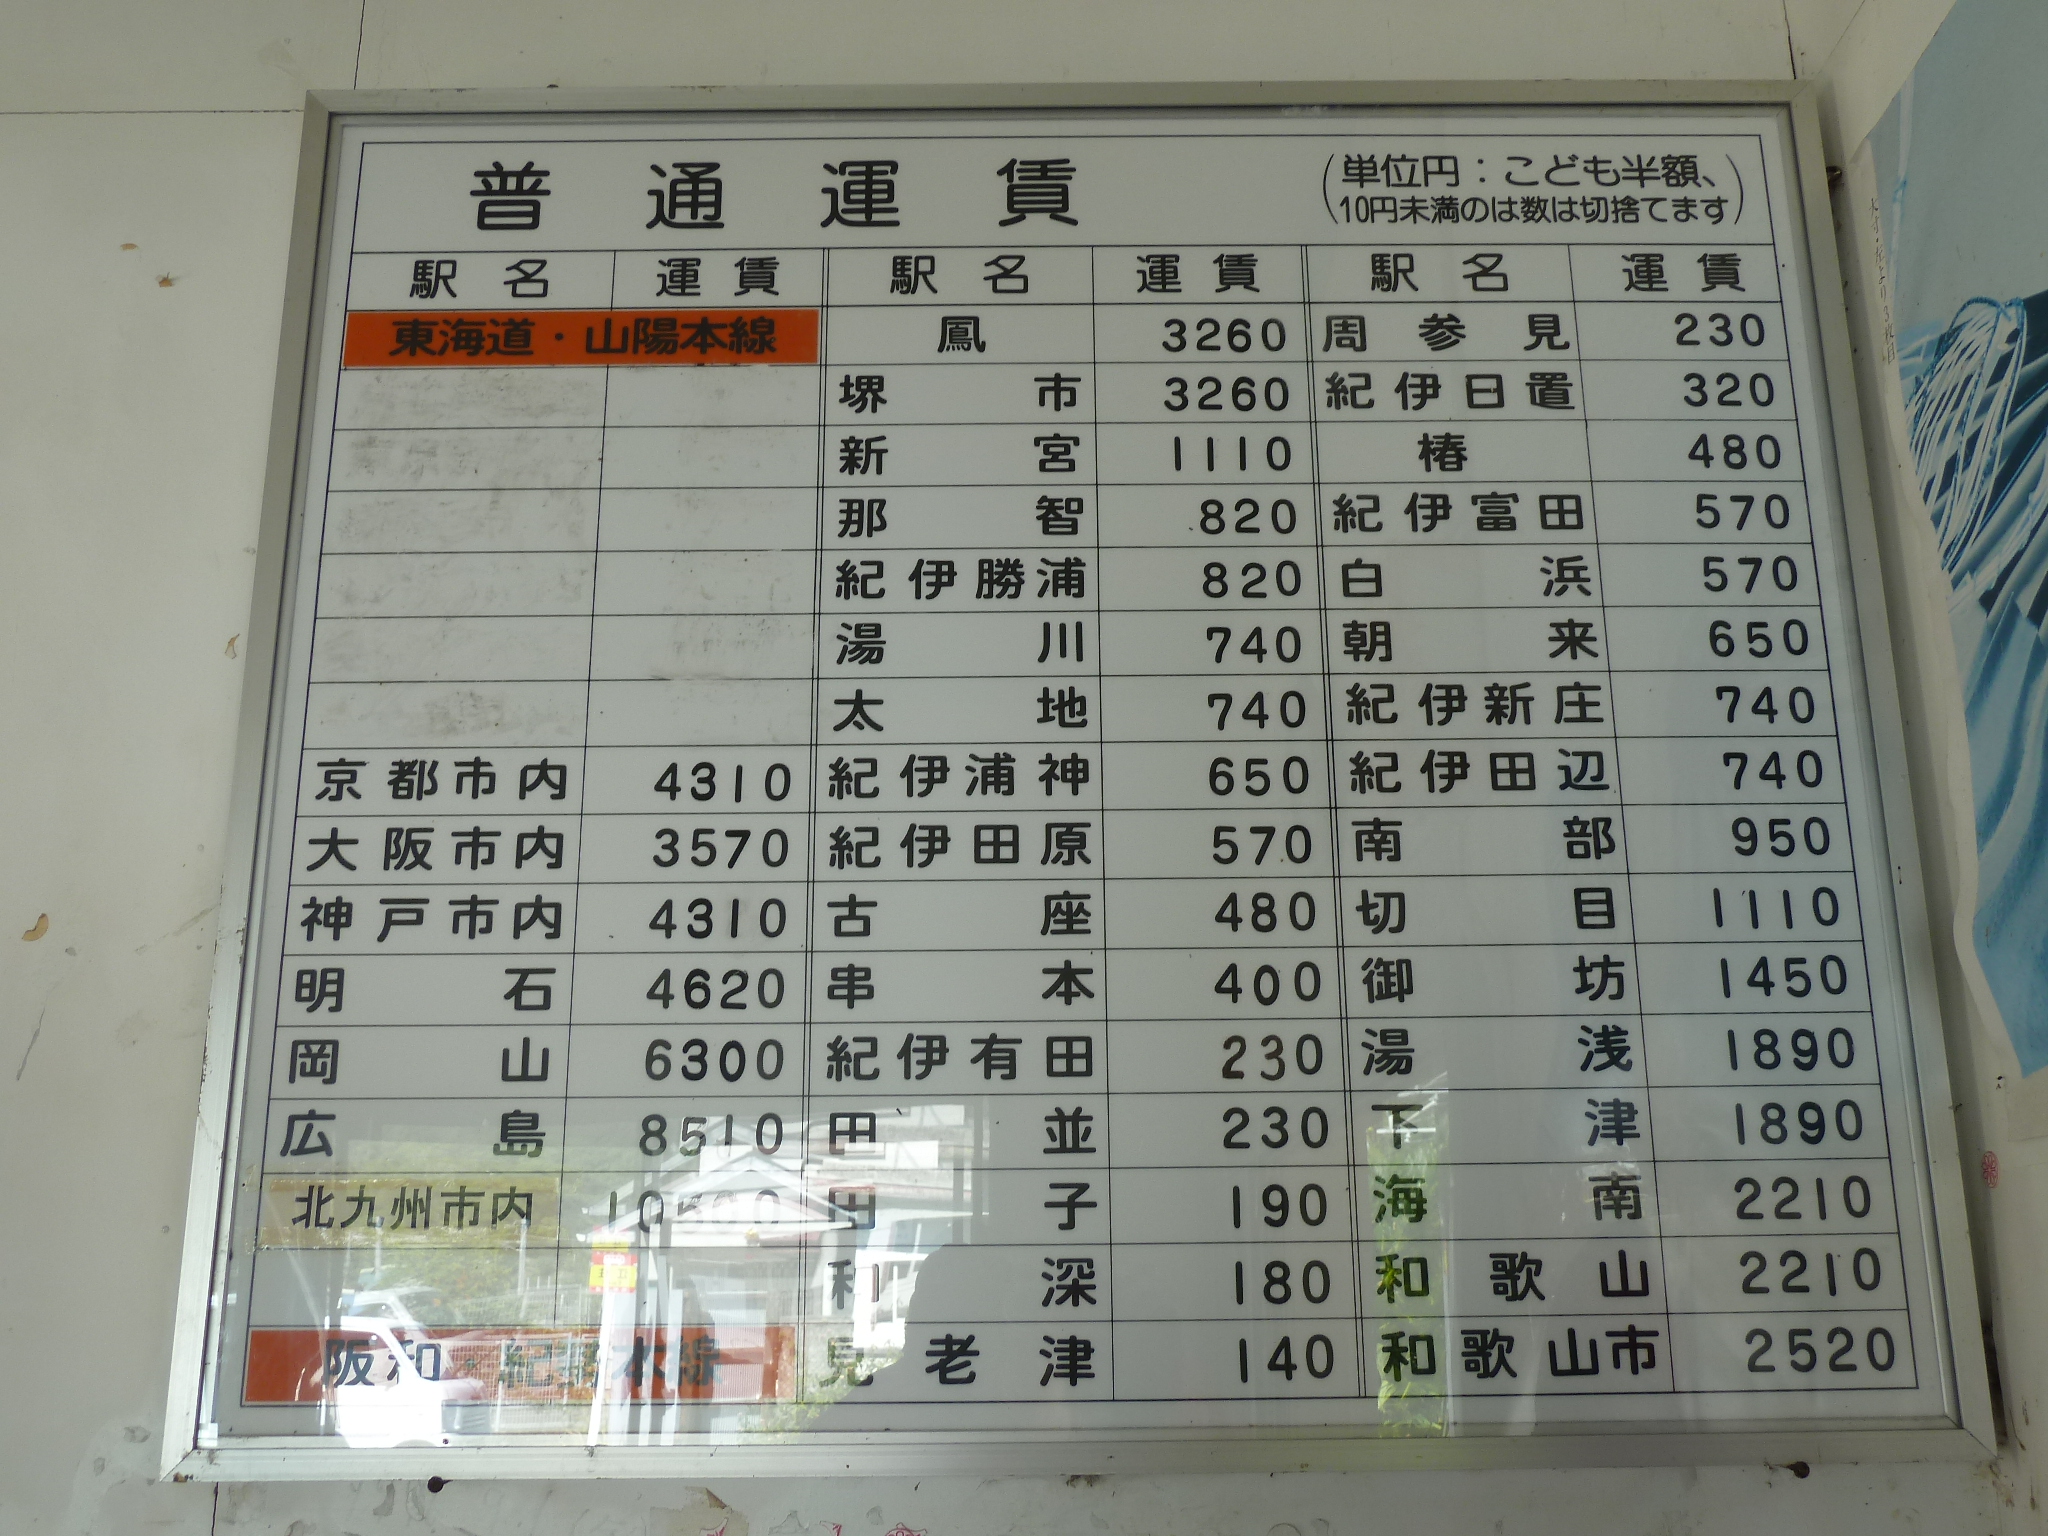 普通運賃
(単位円：こども半額、
10円未満のは数は切捨てます)
駅名 運賃 駅名 運賃 駅名 運賃
東海道・山陽本線 鳳 3260 周参見 230
堺市 3260 紀伊日置 320
新宮 1110 椿 480
那智 820 紀伊富田 570
紀伊勝浦 820 白浜 570
湯川 740 朝来 650
太地 740 紀伊新庄 740
京都市内 4310 紀伊浦神 650 紀伊田辺 740
大阪市内 3570 紀伊田原 570 南部 950
神戸市内 4310 古座 480 切目 1110
明石 4620 串本 400 御坊 1450
岡山 6300 紀伊有田 230 湯浅 1890
広島 8510 田並 230 下津 1890
北九州市内 田子 190 海南 2210
和深 180 和歌山 2210
阪和・紀勢本線 見老津 140 和歌山市 2520